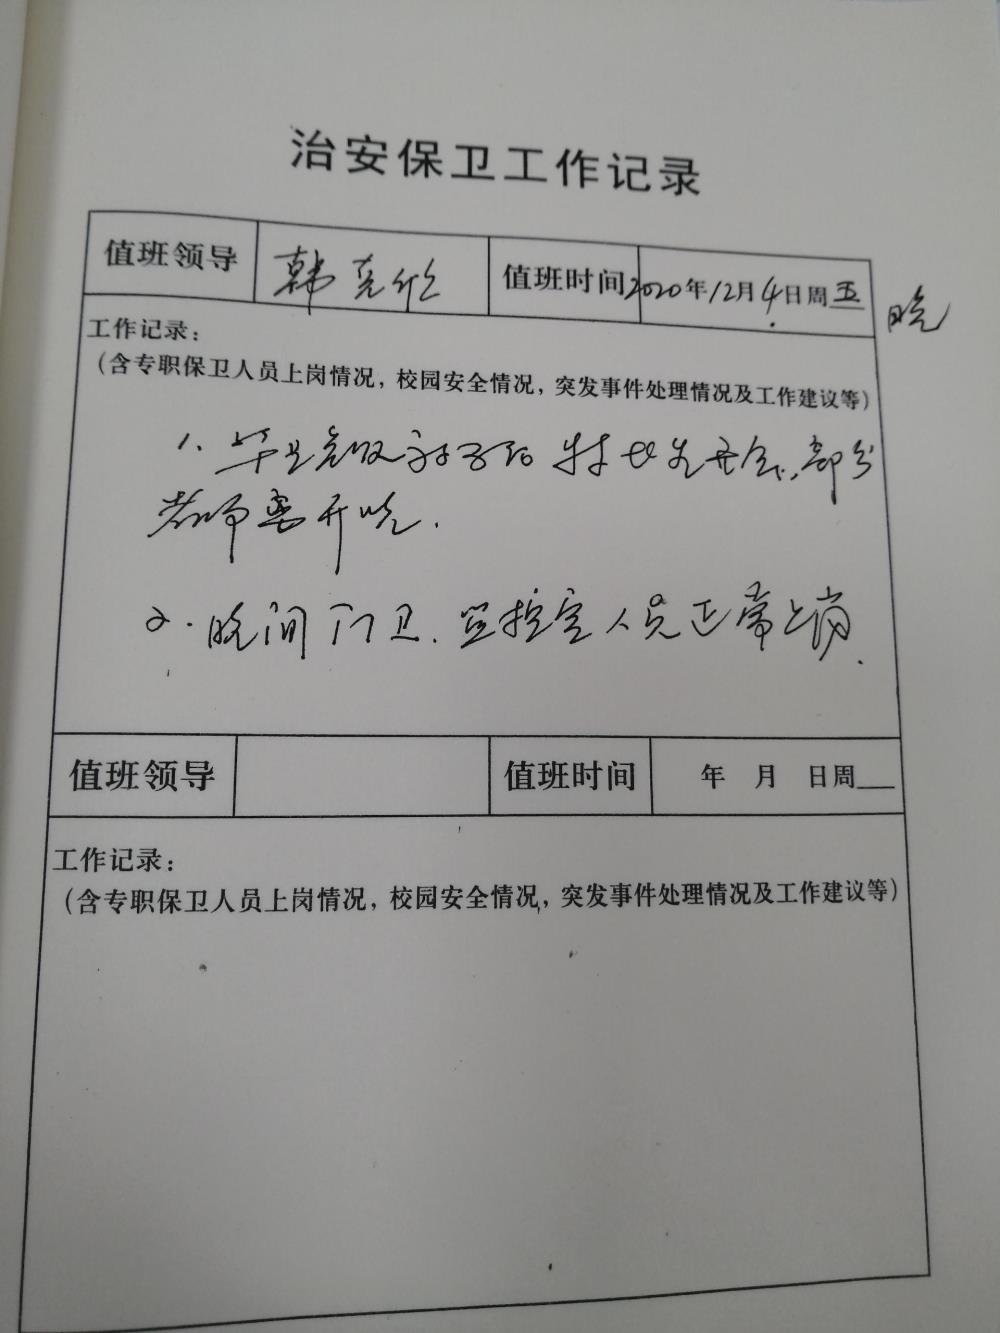 治安保卫工作记录
值班领导 韩克 值班时间 2020年12月4日周五 晚
工作记录：
（含专职保卫人员上岗情况，校园安全情况，突发事件处理情况及工作建议等）
1. 毕业年级 特长生开会、部分
老师离开晚.
2. 晚间门卫、监控室人员正常上岗.
值班领导 值班时间 年 月 日周
工作记录：
（含专职保卫人员上岗情况，校园安全情况，突发事件处理情况及工作建议等）